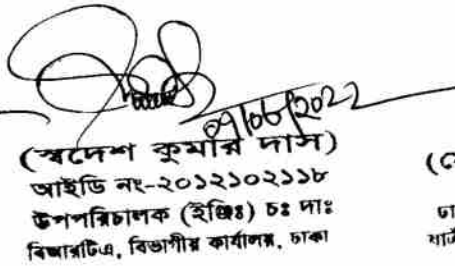 09/06/2022
(স্বদেশ কুমার দাস)
আইডি নং-২০১২১০২১১৮
উপপরিচালক (ইঞ্জিঃ) চঃ দাঃ
বিআরটিএ, বিভাগীয় কার্যালয়, ঢাকা